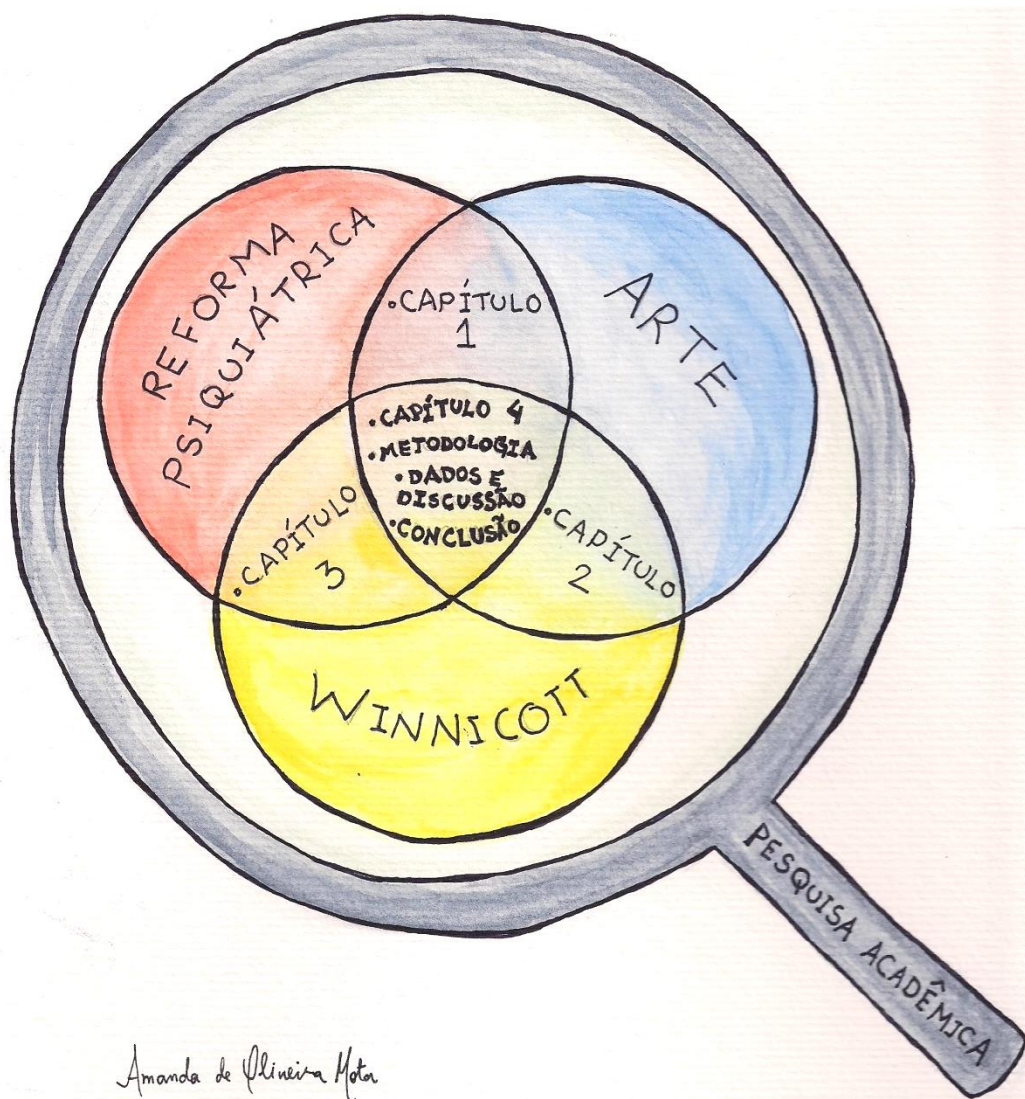 REFORMA
PSIQUIÁTRICA
ARTE
•CAPÍTULO
1
•CAPÍTULO 4
•METODOLOGIA
•DADOS E
DISCUSSÃO
•CONCLUSÃO
•CAPÍTULO
3
•CAPÍTULO
2
WINNICOTT
PESQUISA ACADÊMICA
Amanda de Oliveira Mota